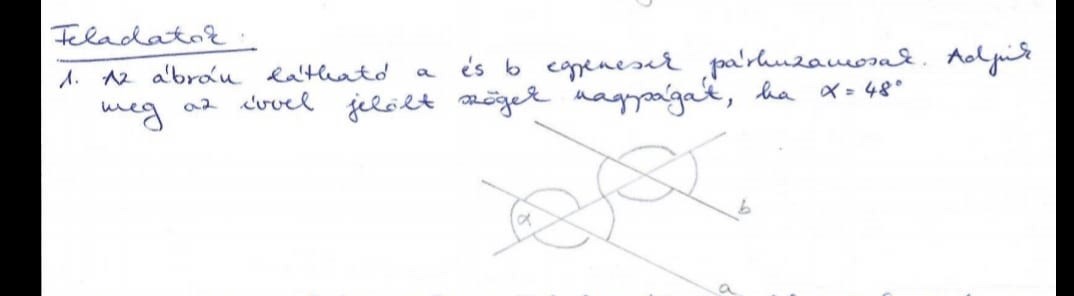 Feladatok:
1. Az ábrán látható a és b egyenesek párhuzamosak. Adjuk
meg az ívvel jelölt szögek nagyságát, ha α = 48°
b
α
a